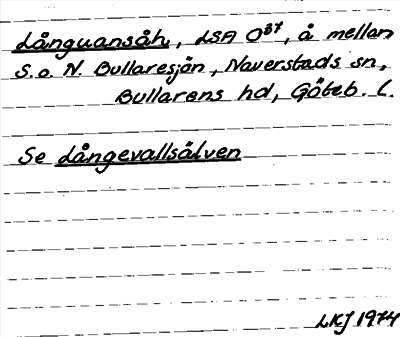 Långuansåh, LSA O³⁷, å mellan
S.o. N. Bullaresjön, Naverstads sn,
Bullarens hd, Göteb. l.
Se Långevallsälven
LKJ 1974